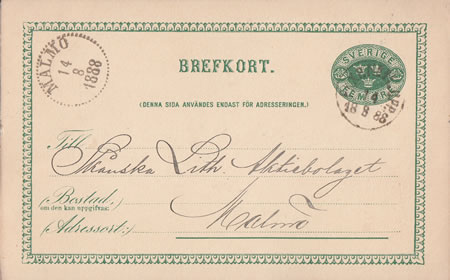 MALMÖ
14
8
1888
BREFKORT.
SVERIGE
FEM ÖRE
(DENNA SIDA ANVÄNDES ENDAST FÖR ADRESSERINGEN.)
Till
Skånska Lith. Aktiebolaget
(Bostad:
om den kan uppgifvas:)
Malmö
(Adressort:)